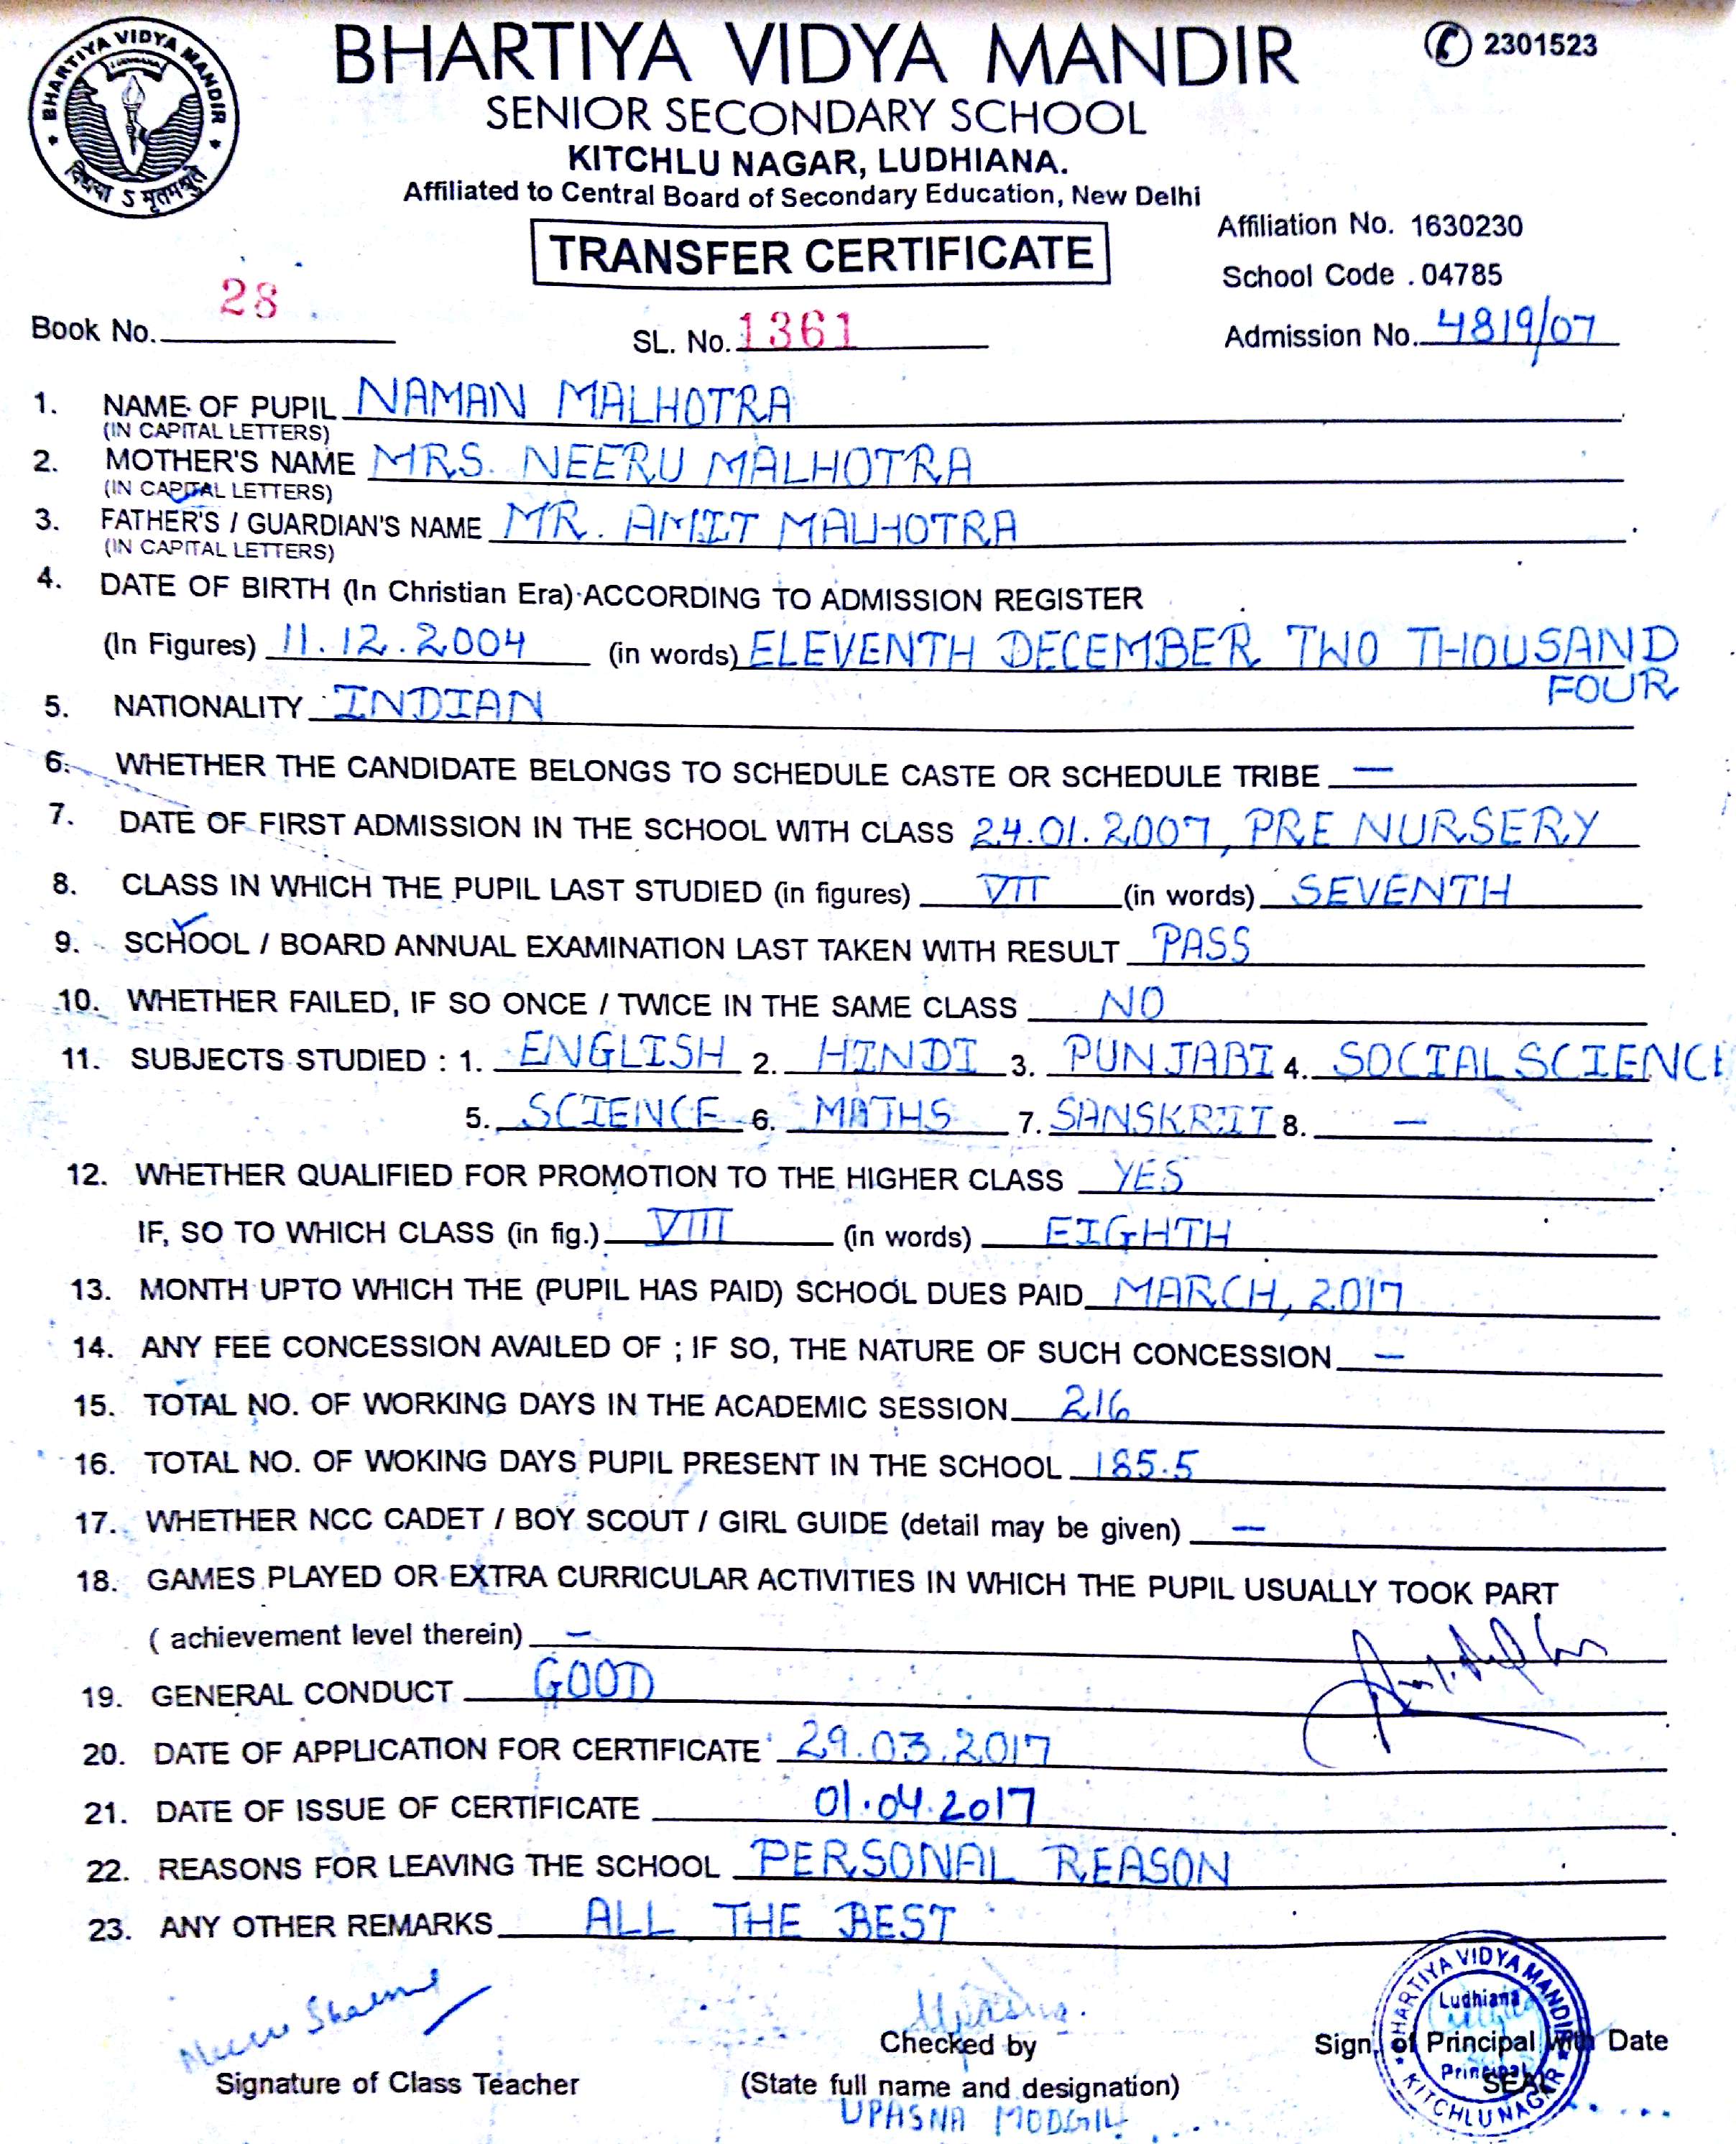 BHARTIYA VIDYA MANDIR
LUDHIANA
विद्यया ऽ मृतमश्नुते
BHARTIYA VIDYA MANDIR
2301523
SENIOR SECONDARY SCHOOL
KITCHLU NAGAR, LUDHIANA.
Affiliated to Central Board of Secondary Education, New Delhi
TRANSFER CERTIFICATE
Affiliation No. 1630230
School Code . 04785
Book No. 28 SL. No. 1361 Admission No. 4819/07
1. NAME OF PUPIL NAMAN MALHOTRA
(IN CAPITAL LETTERS)
2. MOTHER'S NAME MRS. NEERU MALHOTRA
(IN CAPITAL LETTERS)
3. FATHER'S / GUARDIAN'S NAME MR. AMIT MALHOTRA
(IN CAPITAL LETTERS)
4. DATE OF BIRTH (In Christian Era) ACCORDING TO ADMISSION REGISTER
(In Figures) 11.12.2004 (in words) ELEVENTH DECEMBER TWO THOUSAND
FOUR
5. NATIONALITY INDIAN
6. WHETHER THE CANDIDATE BELONGS TO SCHEDULE CASTE OR SCHEDULE TRIBE —
7. DATE OF FIRST ADMISSION IN THE SCHOOL WITH CLASS 24.01.2007, PRE NURSERY
8. CLASS IN WHICH THE PUPIL LAST STUDIED (in figures) VII (in words) SEVENTH
9. SCHOOL / BOARD ANNUAL EXAMINATION LAST TAKEN WITH RESULT PASS
10. WHETHER FAILED, IF SO ONCE / TWICE IN THE SAME CLASS NO
11. SUBJECTS STUDIED : 1. ENGLISH 2. HINDI 3. PUNJABI 4. SOCIAL SCIENCE
5. SCIENCE 6. MATHS 7. SANSKRIT 8. —
12. WHETHER QUALIFIED FOR PROMOTION TO THE HIGHER CLASS YES
IF, SO TO WHICH CLASS (in fig.) VIII (in words) EIGHTH
13. MONTH UPTO WHICH THE (PUPIL HAS PAID) SCHOOL DUES PAID MARCH, 2017
14. ANY FEE CONCESSION AVAILED OF ; IF SO, THE NATURE OF SUCH CONCESSION —
15. TOTAL NO. OF WORKING DAYS IN THE ACADEMIC SESSION 216
16. TOTAL NO. OF WOKING DAYS PUPIL PRESENT IN THE SCHOOL 185.5
17. WHETHER NCC CADET / BOY SCOUT / GIRL GUIDE (detail may be given) —
18. GAMES PLAYED OR EXTRA CURRICULAR ACTIVITIES IN WHICH THE PUPIL USUALLY TOOK PART
( achievement level therein) —
19. GENERAL CONDUCT GOOD
20. DATE OF APPLICATION FOR CERTIFICATE 29.03.2017
21. DATE OF ISSUE OF CERTIFICATE 01.04.2017
22. REASONS FOR LEAVING THE SCHOOL PERSONAL REASON
23. ANY OTHER REMARKS ALL THE BEST
Neeru Sharma
Signature of Class Teacher
Upasna.
Checked by
(State full name and designation)
UPASNA MODGIL
Sign. of Principal with Date
SEAL
BHARTIYA VIDYA MANDIR
Ludhiana
Principal
KITCHLU NAGAR